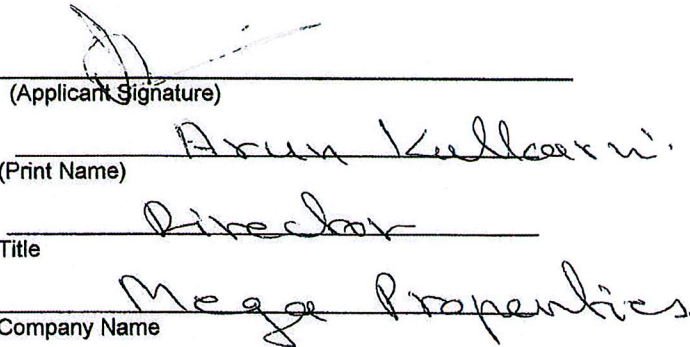 (Applicant Signature)
Arun Kulkarni.
(Print Name)
Director
Title
Mega Properties
Company Name